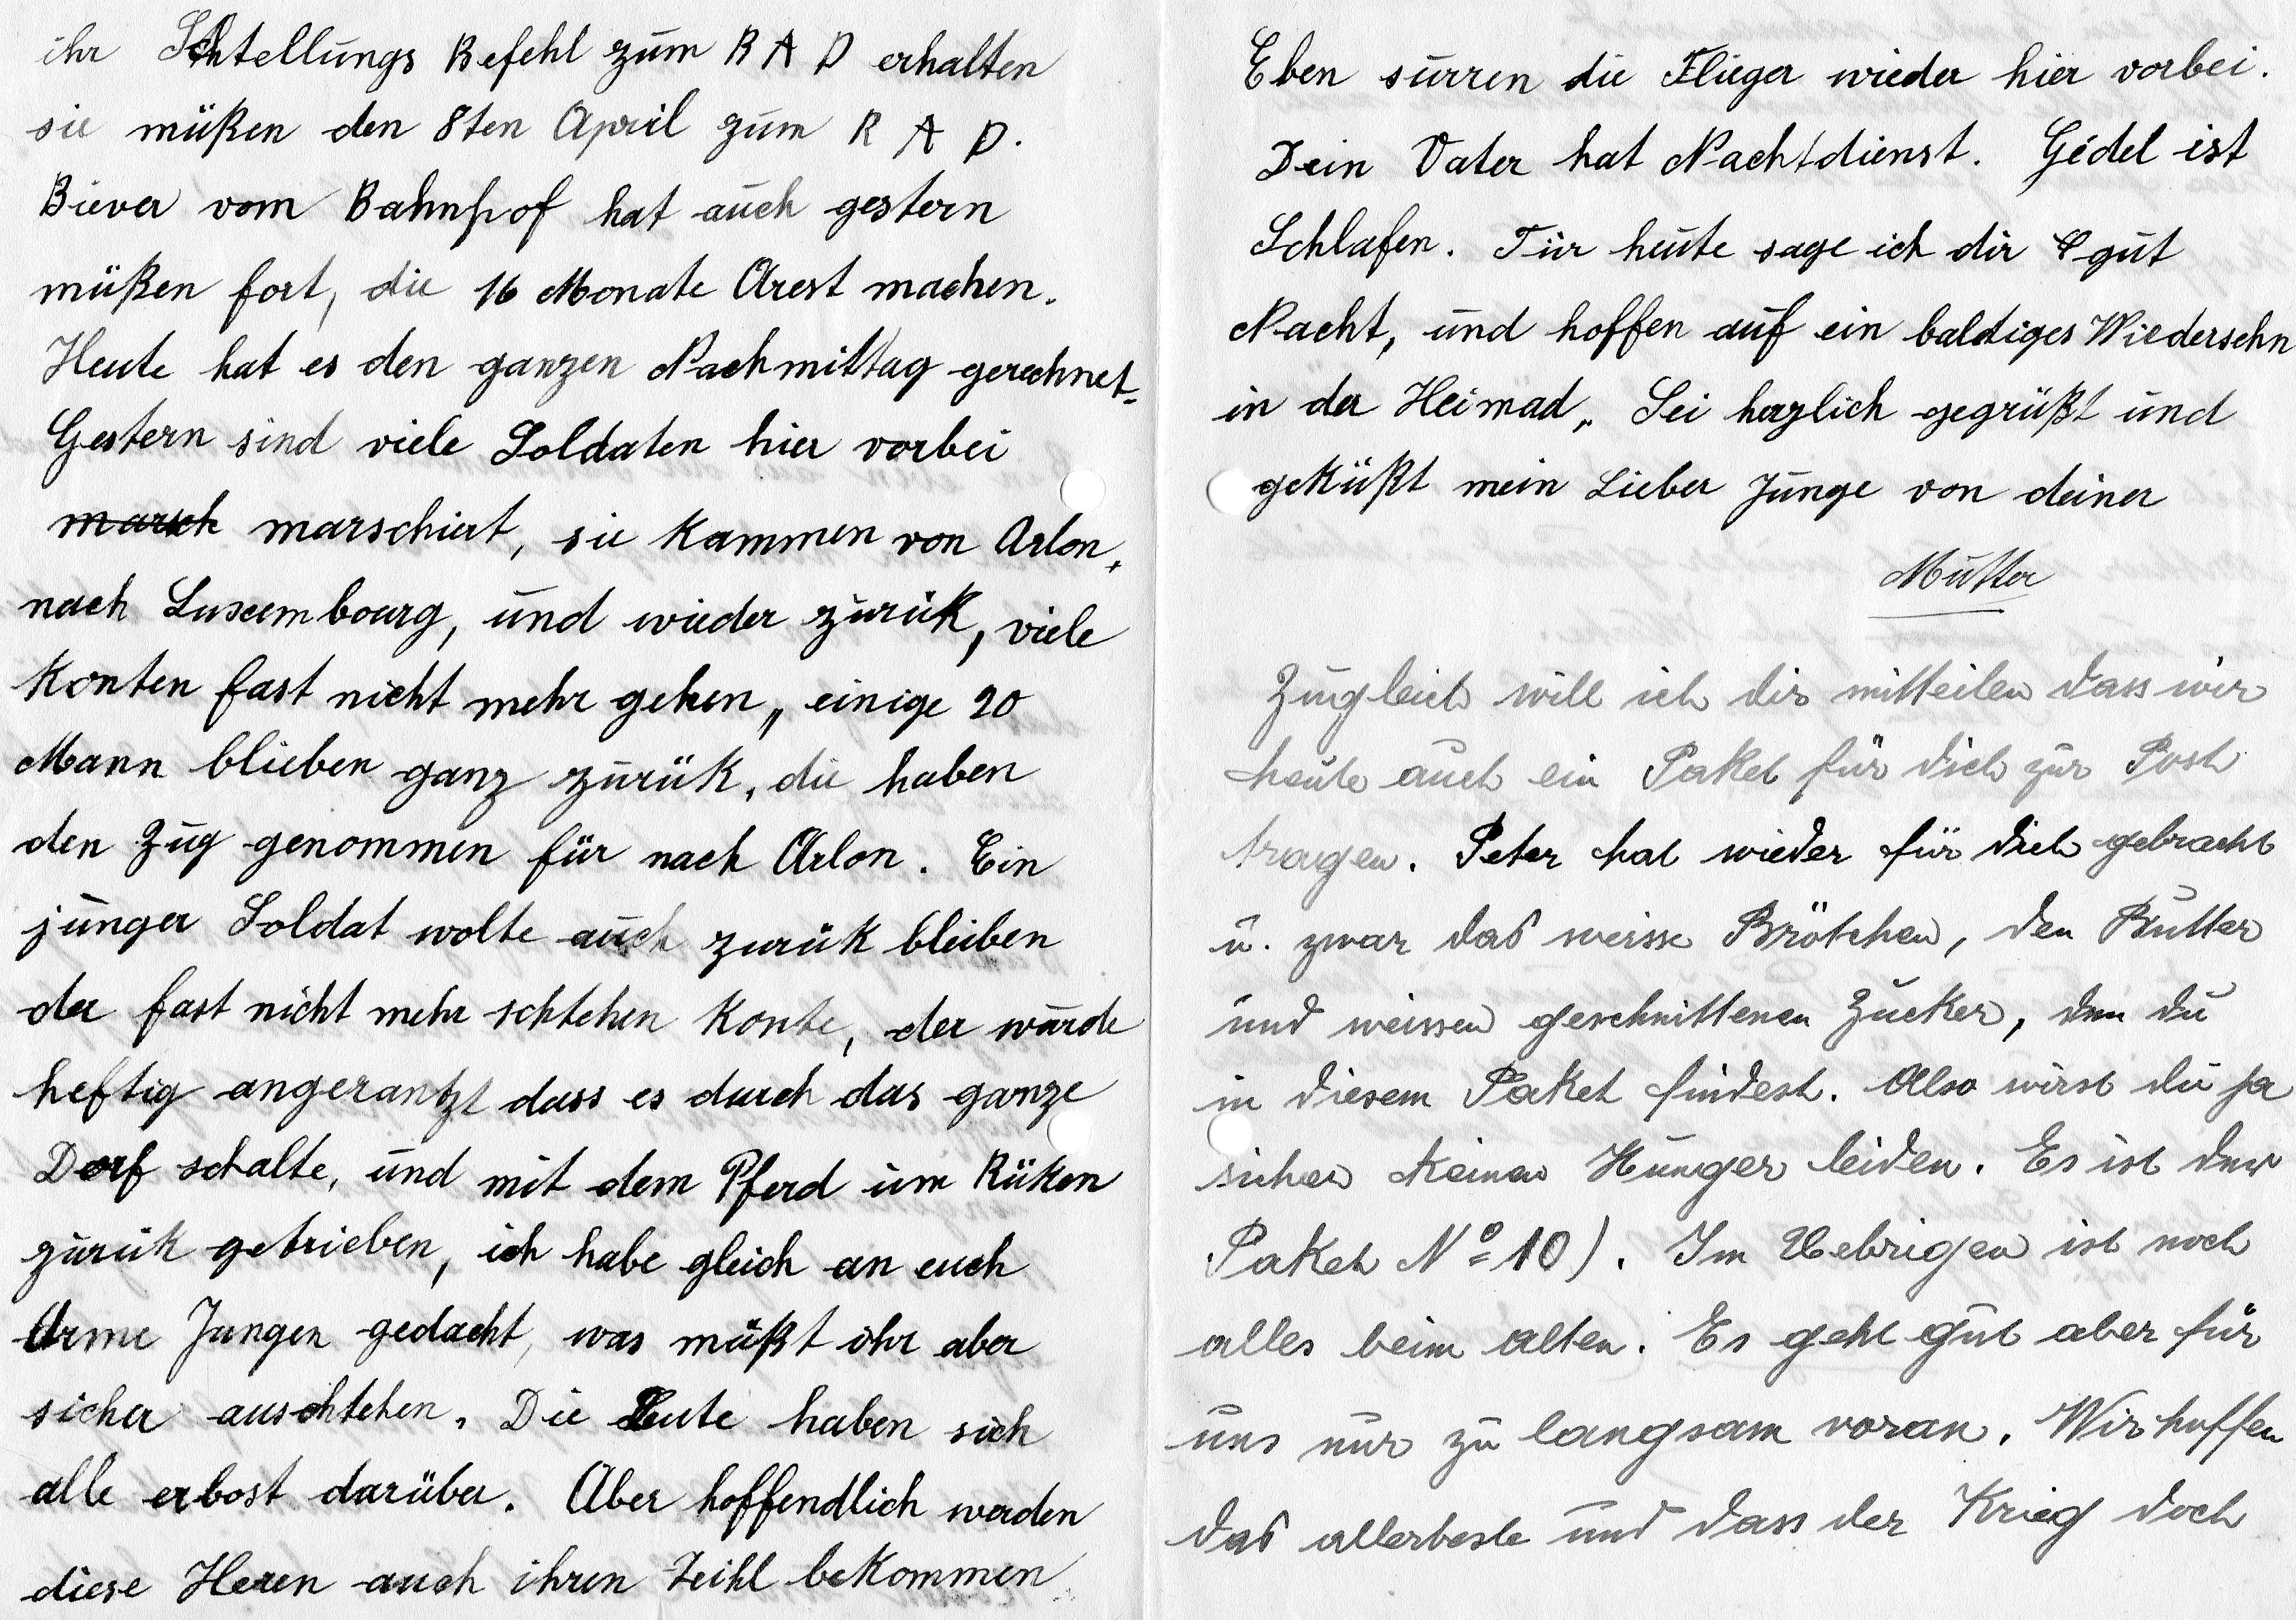 ihr Schtellungs Befehl zum R A D erhalten
sie müßen den 8ten April zum R A D.
Biever vom Bahnhof hat auch gestern
müßen fort, die 16 Monate Arest machen.
Heute hat es den ganzen Nachmittag gerechnet.
Gestern sind viele Soldaten hier vorbei
marsch marschiert, sie kammen von Arlon,
nach Luxembourg, und wieder zurük, viele
konten fast nicht mehr gehen,, einige 20
Mann blieben ganz zurük, die haben
den Zug genommen für nach Arlon. Ein
junger Soldat wolte auch zurük bleiben
der fast nicht mehr schtehen konte, der wurde
heftig angerantzt dass es durch das ganze
Dorf schalte, und mit dem Pferd im Rüken
zurük getrieben, ich habe gleich an euch
Arme Jungen gedacht, was müßt ihr aber
sicher auschtehen. Die Leute haben sich
alle erbost darüber. Aber hoffendlich werden
diese Heren auch ihren Teihl bekommen
Eben surren die Flieger wieder hier vorbei.
Dein Vater hat Nachtdienst. Gédel ist
Schlafen. Für heute sage ich dir gut
Nacht, und hoffen auf ein baldiges Wiedersehn
in der Heimad,, Sei herzlich gegrüßt und
geküßt mein Lieber Junge von deiner
Mutter
Zugleich will ich dir mitteilen dass wir
heute auch ein Paket für dich zur Post
tragen. Peter hat wieder für dich gebracht
u. zwar das weisse Brötchen, den Butter
und weissen geschnittenen Zucker, den du
in diesem Paket findest. Also wirst du ja
sicher keinen Hunger leiden. Es ist das
Paket Nº 10). Im Uebrigen ist noch
alles beim alten. Es geht gut aber für
uns nur zu langsam voran. Wir hoffen
das allerbeste und dass der Krieg doch